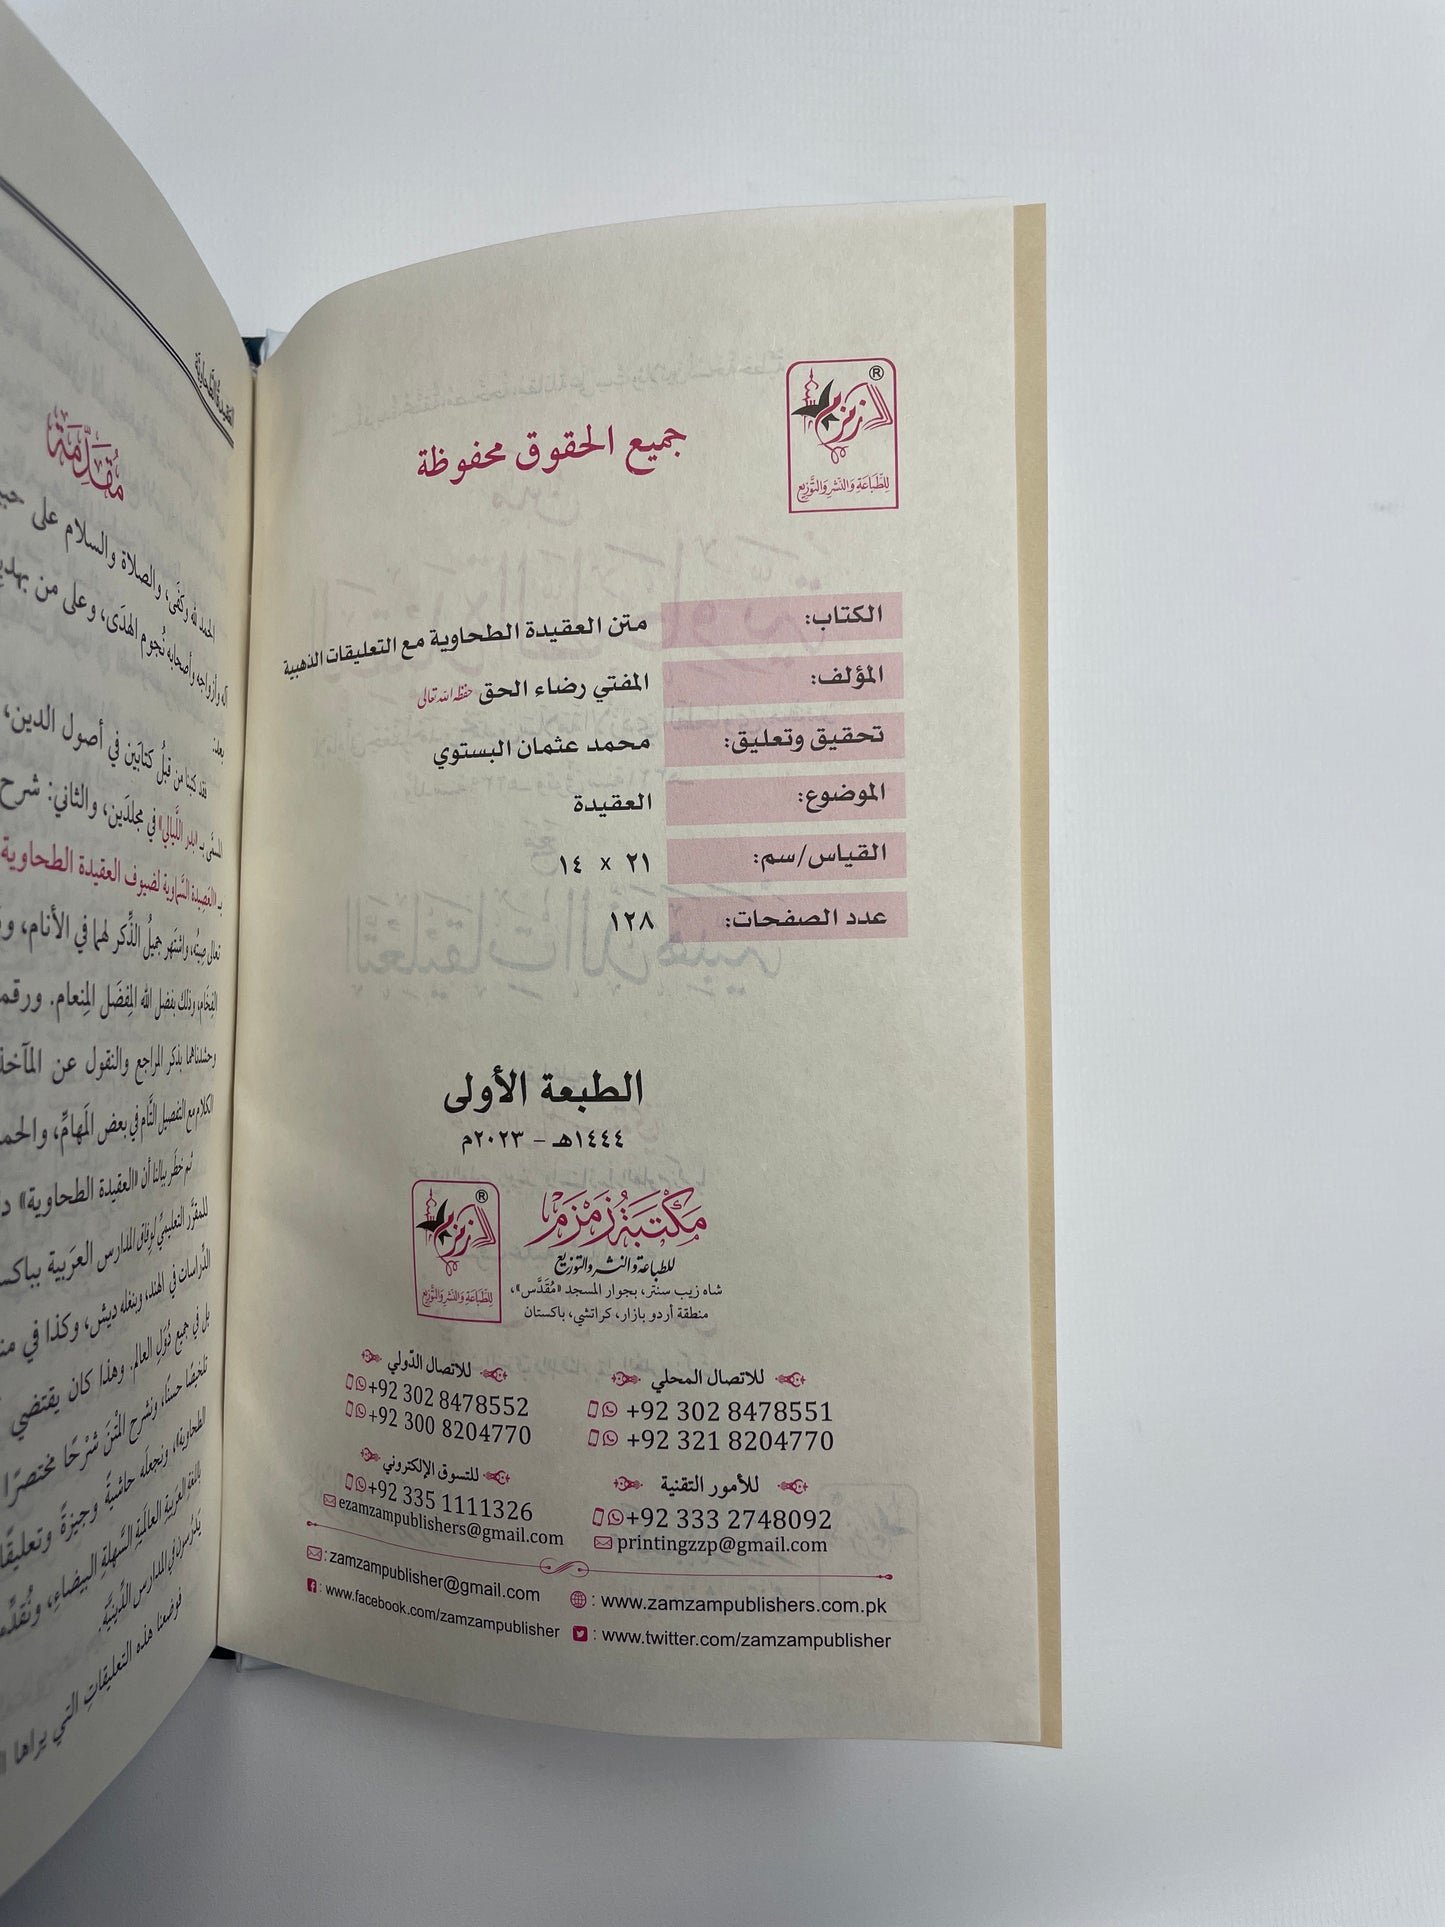 جميع الحقوق محفوظة
زمزم ®
للطباعة والنشر والتوزيع
الكتاب: متن العقيدة الطحاوية مع التعليقات الذهبية
المؤلف: المفتي رضاء الحق حفظه الله تعالى
تحقيق وتعليق: محمد عثمان البستوي
الموضوع: العقيدة
القياس/سم: ٢١ x ١٤
عدد الصفحات: ١٢٨
الطبعة الأولى
١٤٤٤هـ – ٢٠٢٣م
مَكْتَبَةُ زَمْزَمْ
للطباعة والنشر والتوزيع
شاه زيب سنتر، بجوار المسجد «مُقَدَّس»،
منطقة أردو بازار، كراتشي، باكستان
زمزم ®
للطباعة والنشر والتوزيع
للاتصال المحلي
+92 302 8478551
+92 321 8204770
للاتصال الدّولي
+92 302 8478552
+92 300 8204770
للأمور التقنية
+92 333 2748092
printingzzp@gmail.com
للتسوق الإلكتروني
+92 335 1111326
ezamzampublishers@gmail.com
: zamzampublisher@gmail.com
: www.zamzampublishers.com.pk
: www.facebook.com/zamzampublisher
: www.twitter.com/zamzampublisher
العقيدة الطحاوية
مُقَدِّمَة
الحمد لله وكفَى، والصلاة والسلام على
آله وأزواجه وأصحابه نُجوم الهدَى، وعلى من
بعد:
فقد كتبنا من قبلُ كتابَين في أصول الدين،
المسمَّى بـ «بدر اللَّيالي» في مجلدَين، والثاني: شرح
بـ «العَصِيدة السَّماوية لضيوف العقيدة الطحاوية
تعالى صِيتُه، واشتهر جميلُ الذِّكر لهما في الأنام،
الفِخَام، وذلك بفضل الله المِفضَل المِنعام.
وحشدناهما بذكر المراجع والنقول عن
الكلام مع التفصيل التَّام في بعض المَهامِّ،
ثم خطَر ببالنا أن «العقيدة الطحاوية»
للمقرَّر التعليميِّ لوِفاق المدارس العرَبية
الدِّراسات في الهند، وبنغله ديش، وكذا في
بل في جميع دُوَلِ العالم. وهذا كان يقتضي
تلخيصًا حسنًا، ونشرح المَتْنَ شَرْحًا مختصرًا
الطحاوية»، ونجعلَه حاشيةً وجيزةً
باللغة العرَبية العالَمية السَّهلةِ البيضاءِ،
يَدرُسون في المدارس الدِّينيَّة.
فوضعنا هذه التعليقاتِ التي يراها